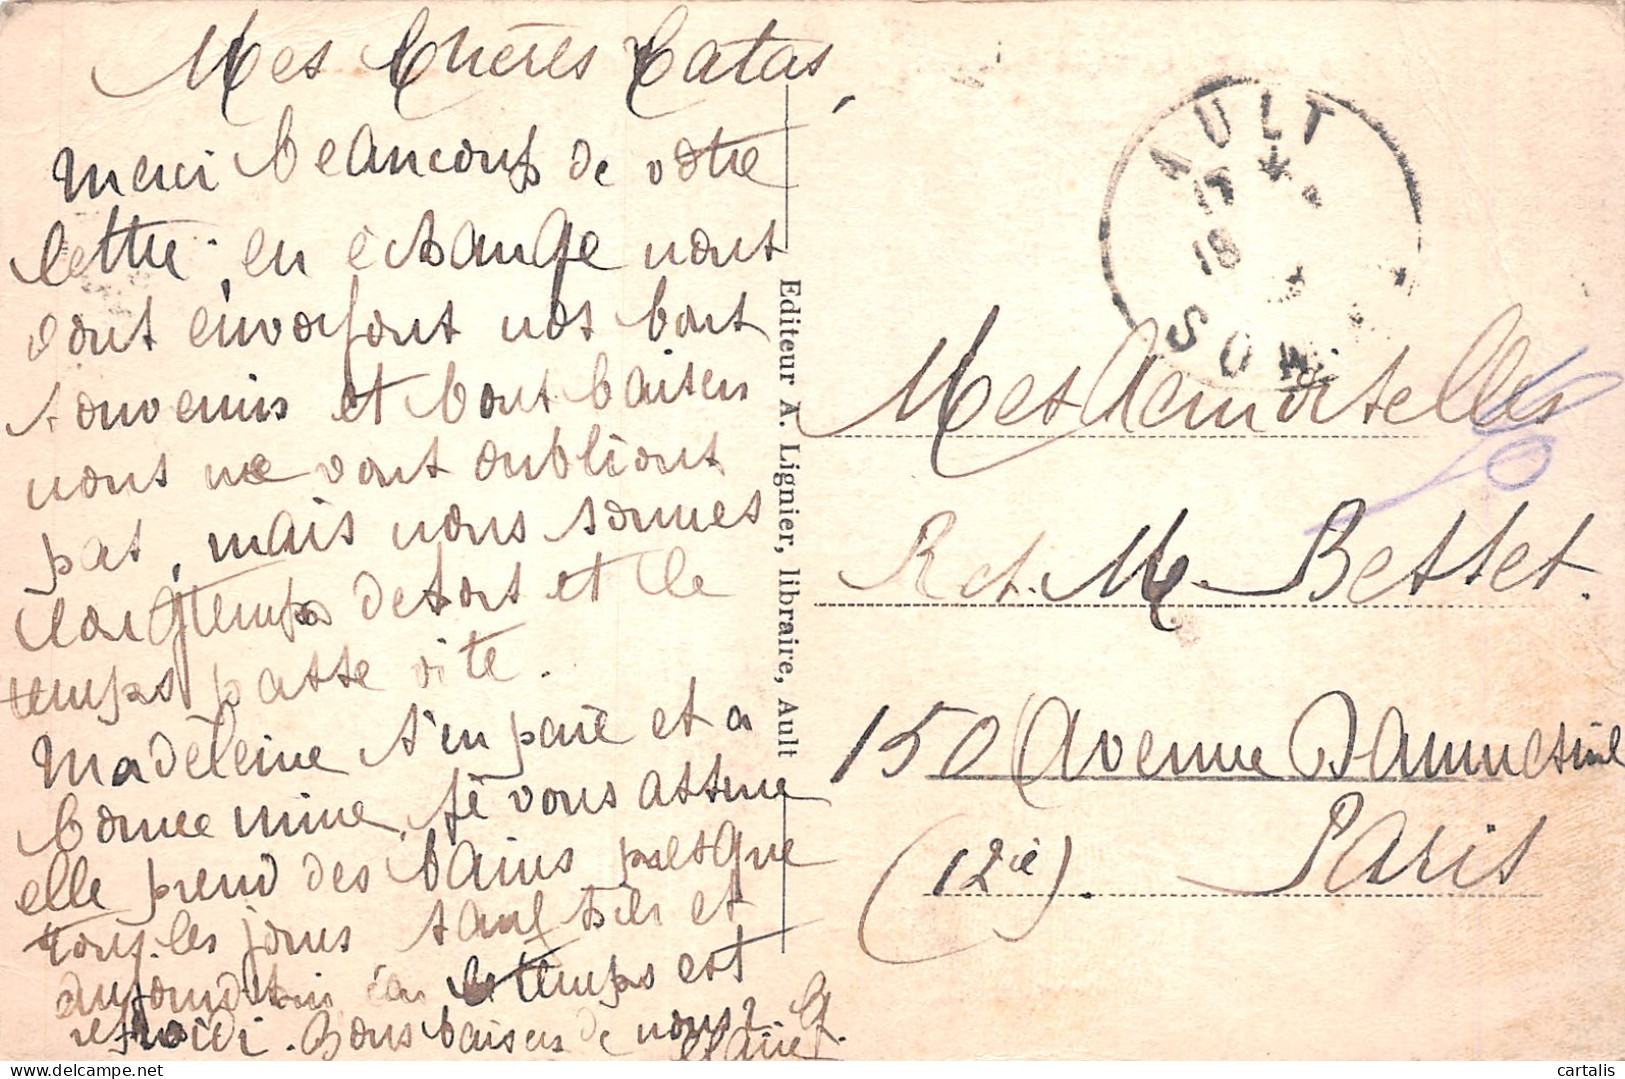 Mes Chères Catas,
Merci beaucoup de votre
lettre, en échange nous
vous envoyons nos bons
souvenirs et bons baisers
nous ne vous oublions
pas, mais nous sommes
longtemps dehors et le
temps passe vite.
Madeleine s'en paie et a
bonne mine, je vous assure
elle prend des bains presque
tous les jours sauf hier et
aujourd'hui car le temps est
refroidi. Bons baisers de nous 2
Editeur A. Lignier, libraire, Ault
AULT
17
18
SOM
Mesdemoiselles
R et M. Besset.
150 Avenue Daumesnil
(12è). Paris
cartalis